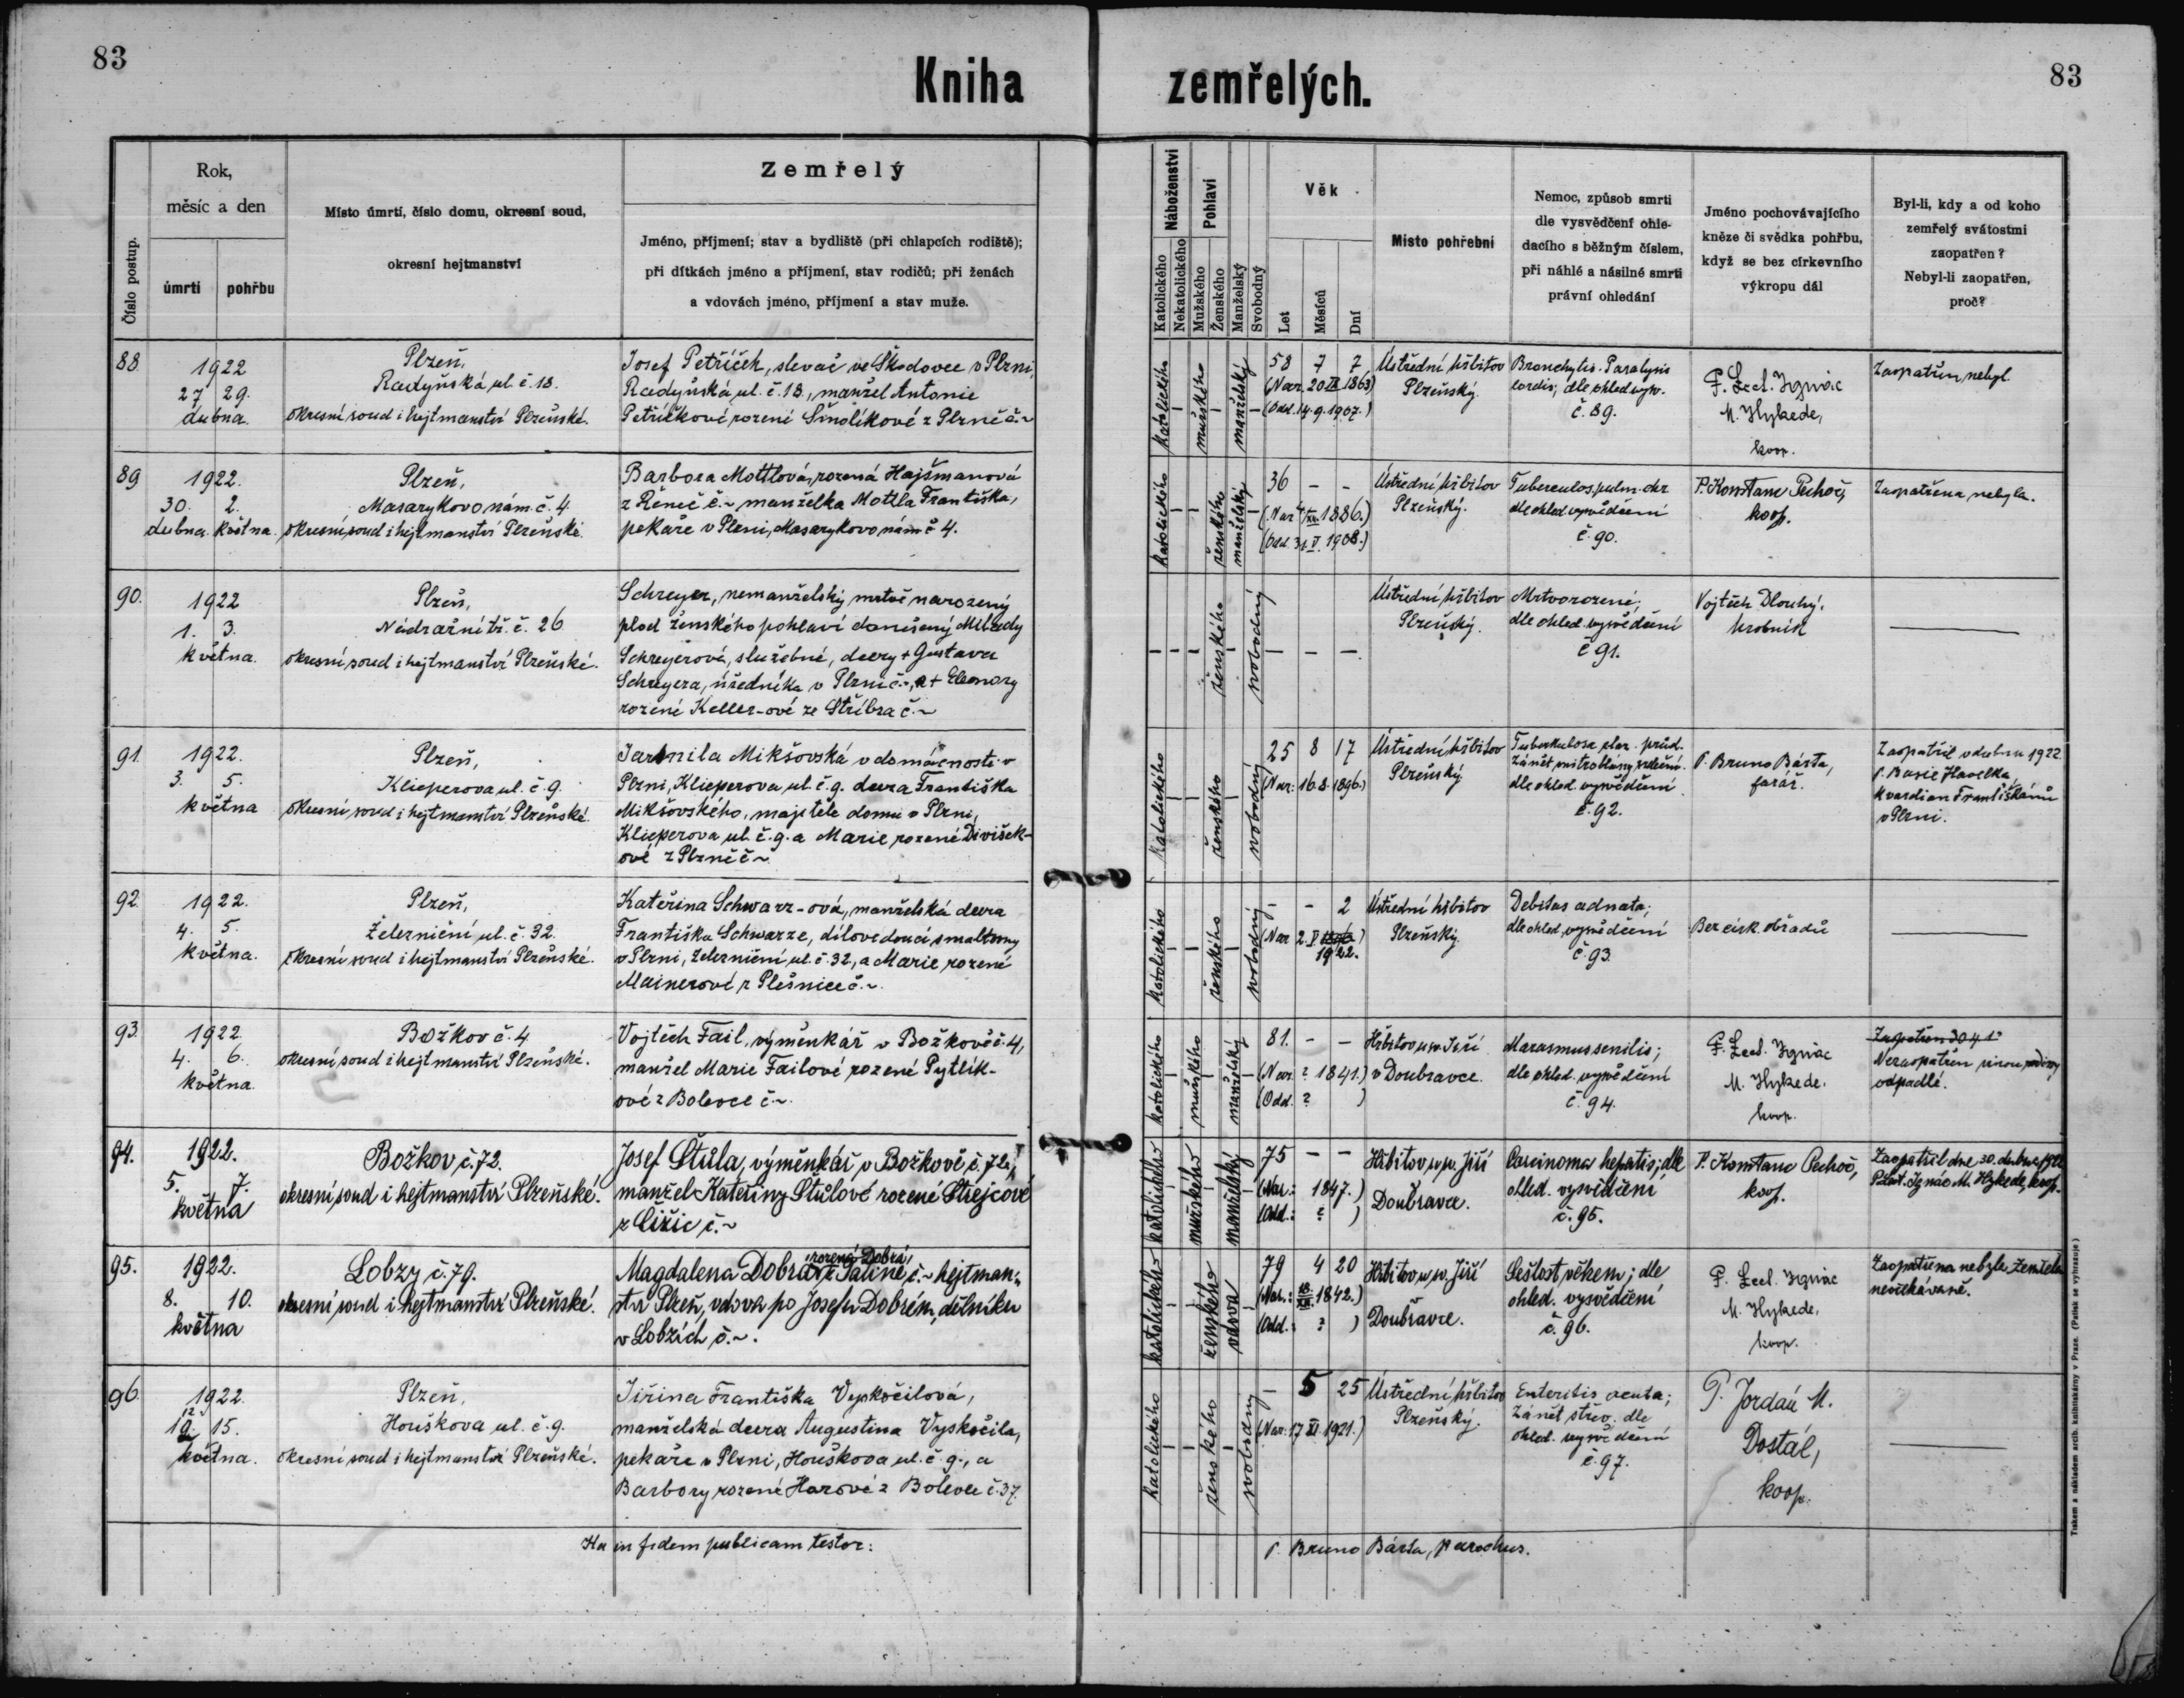 83
Kniha zemřelých.
83
Číslo postup.
Rok,
měsíc a den
úmrtí
pohřbu
Místo úmrtí, číslo domu, okresní soud,
okresní hejtmanství
Zemřelý
Jméno, příjmení; stav a bydliště (při chlapcích rodiště);
při dítkách jméno a příjmení, stav rodičů; při ženách
a vdovách jméno, příjmení a stav muže.
Náboženství
Katolického
Nekatolického
Pohlaví
Mužského
Ženského
Manželský
Svobodný
Věk
Let
Měsíců
Dní
Místo pohřební
Nemoc, způsob smrti
dle vysvědčení ohle-
dacího s běžným číslem,
při náhlé a násilné smrti
právní ohledání
Jméno pochovávajícího
kněze či svědka pohřbu,
když se bez církevního
výkropu dál
Byl-li, kdy a od koho
zemřelý svátostmi
zaopatřen?
Nebyl-li zaopatřen,
proč?
88
1922
27 29.
dubna.
Plzeň,
Radyňská ul. č. 18.
okresní soud i hejtmanství Plzeňské.
Josef Petříček, slevač ve Škodovce v Plzni,
Radyňská ul. č. 18., manžel Antonie
Petříčkové rozené Šmolíkové z Plzně č. ~
katolického
mužského
manželský
58 7 7
(Nar. 20 1863)
(Odd. 14. 9. 1907.)
Ústřední hřbitov
Plzeňský.
Bronchytis. Paralysis
cordis; dle ohled. vysv.
č. 89.
P. Lect. Ignác
M. Hykede,
koop.
Zaopatřen nebyl.
89
1922.
30. 2.
dubna. května.
Plzeň,
Masarykovo nám. č. 4.
okresní soud i hejtmanství Plzeňské.
Barbora Mottlová, rozená Hajšmanová
z Řeneč č. ~ manželka Mottla Františka,
pekaře v Plzni, Masarykovo nám. č 4.
katolického
ženského
manželský
36 - -
(Nar. 4/XII. 1886.)
(Odd. 31. V. 1908.)
Ústřední hřbitov
Plzeňský.
Tuberculos. pulm. chr.
dle ohled. vysvědčení
č. 90.
P. Konstanc Pechoč,
koop.
Zaopatřena nebyla.
90.
1922
1. 3.
května.
Plzeň,
Nádražní tř. č. 26
okresní soud i hejtmanství Plzeňské.
Schreyer, nemanželský mrtvě narozený
plod ženského pohlaví donošený Milady
Schreyerové, služebné, dcery + Gustava
Schreyera, úředníka v Plzni č. ~, a + Eleonory
rozené Keller-ové ze Stříbra č. ~
ženského
svobodný
- - -
Ústřední hřbitov
Plzeňský.
Mrtvorozené;
dle ohled. vysvědčení
č 91.
Vojtěch Dlouhý,
hrobník
91.
1922.
3. 5.
května
Plzeň,
Klicperova ul. č. 9.
okresní soud i hejtmanství Plzeňské.
Jarmila Mikšovská v domácnosti v
Plzni, Klicperova ul. č. 9. dcera Františka
Mikšovského, majitele domu v Plzni,
Klicperova ul. č. 9. a Marie rozené Divíšek-
ové z Plzně č ~
katolického
ženského
svobodný
25 8 17
(Nar: 16. 8. 1896.)
Ústřední hřbitov
Plzeňský.
Tuberkulosa plic. průd.
zánět nitroblány srdeční.
dle ohled. vysvědčení
č. 92.
P. Bruno Bárta,
farář.
Zaopatřil v dubnu 1922
P. Havelka,
kvardian Františkánů
v Plzni.
92.
1922.
4. 5.
května.
Plzeň,
Železniční ul. č. 32.
okresní soud i hejtmanství Plzeňské.
Kateřina Schwarz-ová, manželská dcera
Františka Schwarze, dílovedoucí smaltovny
v Plzni, Železniční ul. č. 32, a Marie rozené
Mainerové z Plešnice č. ~.
katolického
ženského
svobodný
- - 2
(Nar. 2. V.
1922.
Ústřední hřbitov
Plzeňský.
Debitas adnata;
dle ohled. vysvědčení
č. 93.
Bez círk. obřadů
93.
1922.
4. 6.
května.
Božkov č. 4
okresní soud i hejtmanství Plzeňské.
Vojtěch Fail, výměnkář v Božkově č. 4,
manžel Marie Failové rozené Pytlík-
ové z Bolevce č. ~.
katolického
mužského
manželský
81. - -
(Nar. ? 1841.)
(Odd. ? )
Hřbitov u sv. Jiří
v Doubravce.
Marasmus senilis;
dle ohled. vysvědčení
č. 94.
P. Lect. Ignác
M. Hykede.
koop.
Nezaopatřen vinou rodiny
odpadlé.
94.
1922.
5. 7.
května
Božkov č. 72.
okresní soud i hejtmanství Plzeňské.
Josef Štůla, výměnkář v Božkově, č. 72,
manžel Kateřiny Štůlové rozené Strejcové
z Čižic č. ~
katolického
mužského
manželský
75 - -
(Nar.: 1847.)
(Odd.: ? )
Hřbitov u sv. Jiří
Doubrava.
Carcinoma hepatis; dle
ohled. vysvědčení
č. 95.
P. Konstanc Pechoč,
koop.
Zaopatřil dne 30. dubna 1922
P. Lect. Ignác M. Hykede, koop.
95.
1922.
8. 10.
května
Lobzy č. 79.
okresní soud i hejtmanství Plzeňské.
rozená Dobrá
Magdalena Dobrá, č. ~ hejtman-
ství Plzeň, vdova po Josefu Dobrém, dělníku
v Lobzích č. ~.
katolického
ženského
vdova
79 4 20
(Nar.: 1842.)
(Odd.: ? )
Hřbitov u sv. Jiří
v Doubravce.
Sešlost věkem; dle
ohled. vysvědčení
č. 96.
P. Lect. Ignác
M. Hykede,
koop.
Zaopatřena nebyla. Zemřela
neočekávaně.
96.
1922.
12. 15.
května.
Plzeň,
Houškova ul. č. 9.
okresní soud i hejtmanství Plzeňské.
Jiřina Františka Vyskočilová,
manželská dcera Augustina Vyskočila,
pekaře v Plzni, Houškova ul. č. 9., a
Barbory rozené Harové z Bolevce č. 37.
katolického
ženského
svobodný
- 5 25
(Nar. 17 XI. 1921.)
Ústřední hřbitov
Plzeňský.
Enteritis acuta;
Zánět střev. dle
ohled. vysvědčení
č. 97.
P. Jordán M.
Dostál,
koop.
in fidem publicam testor:
P. Bruno Bárta, parochus.
Tiskem a nákladem arcib. knihtiskárny v Praze. (Patisk se vyhrazuje)